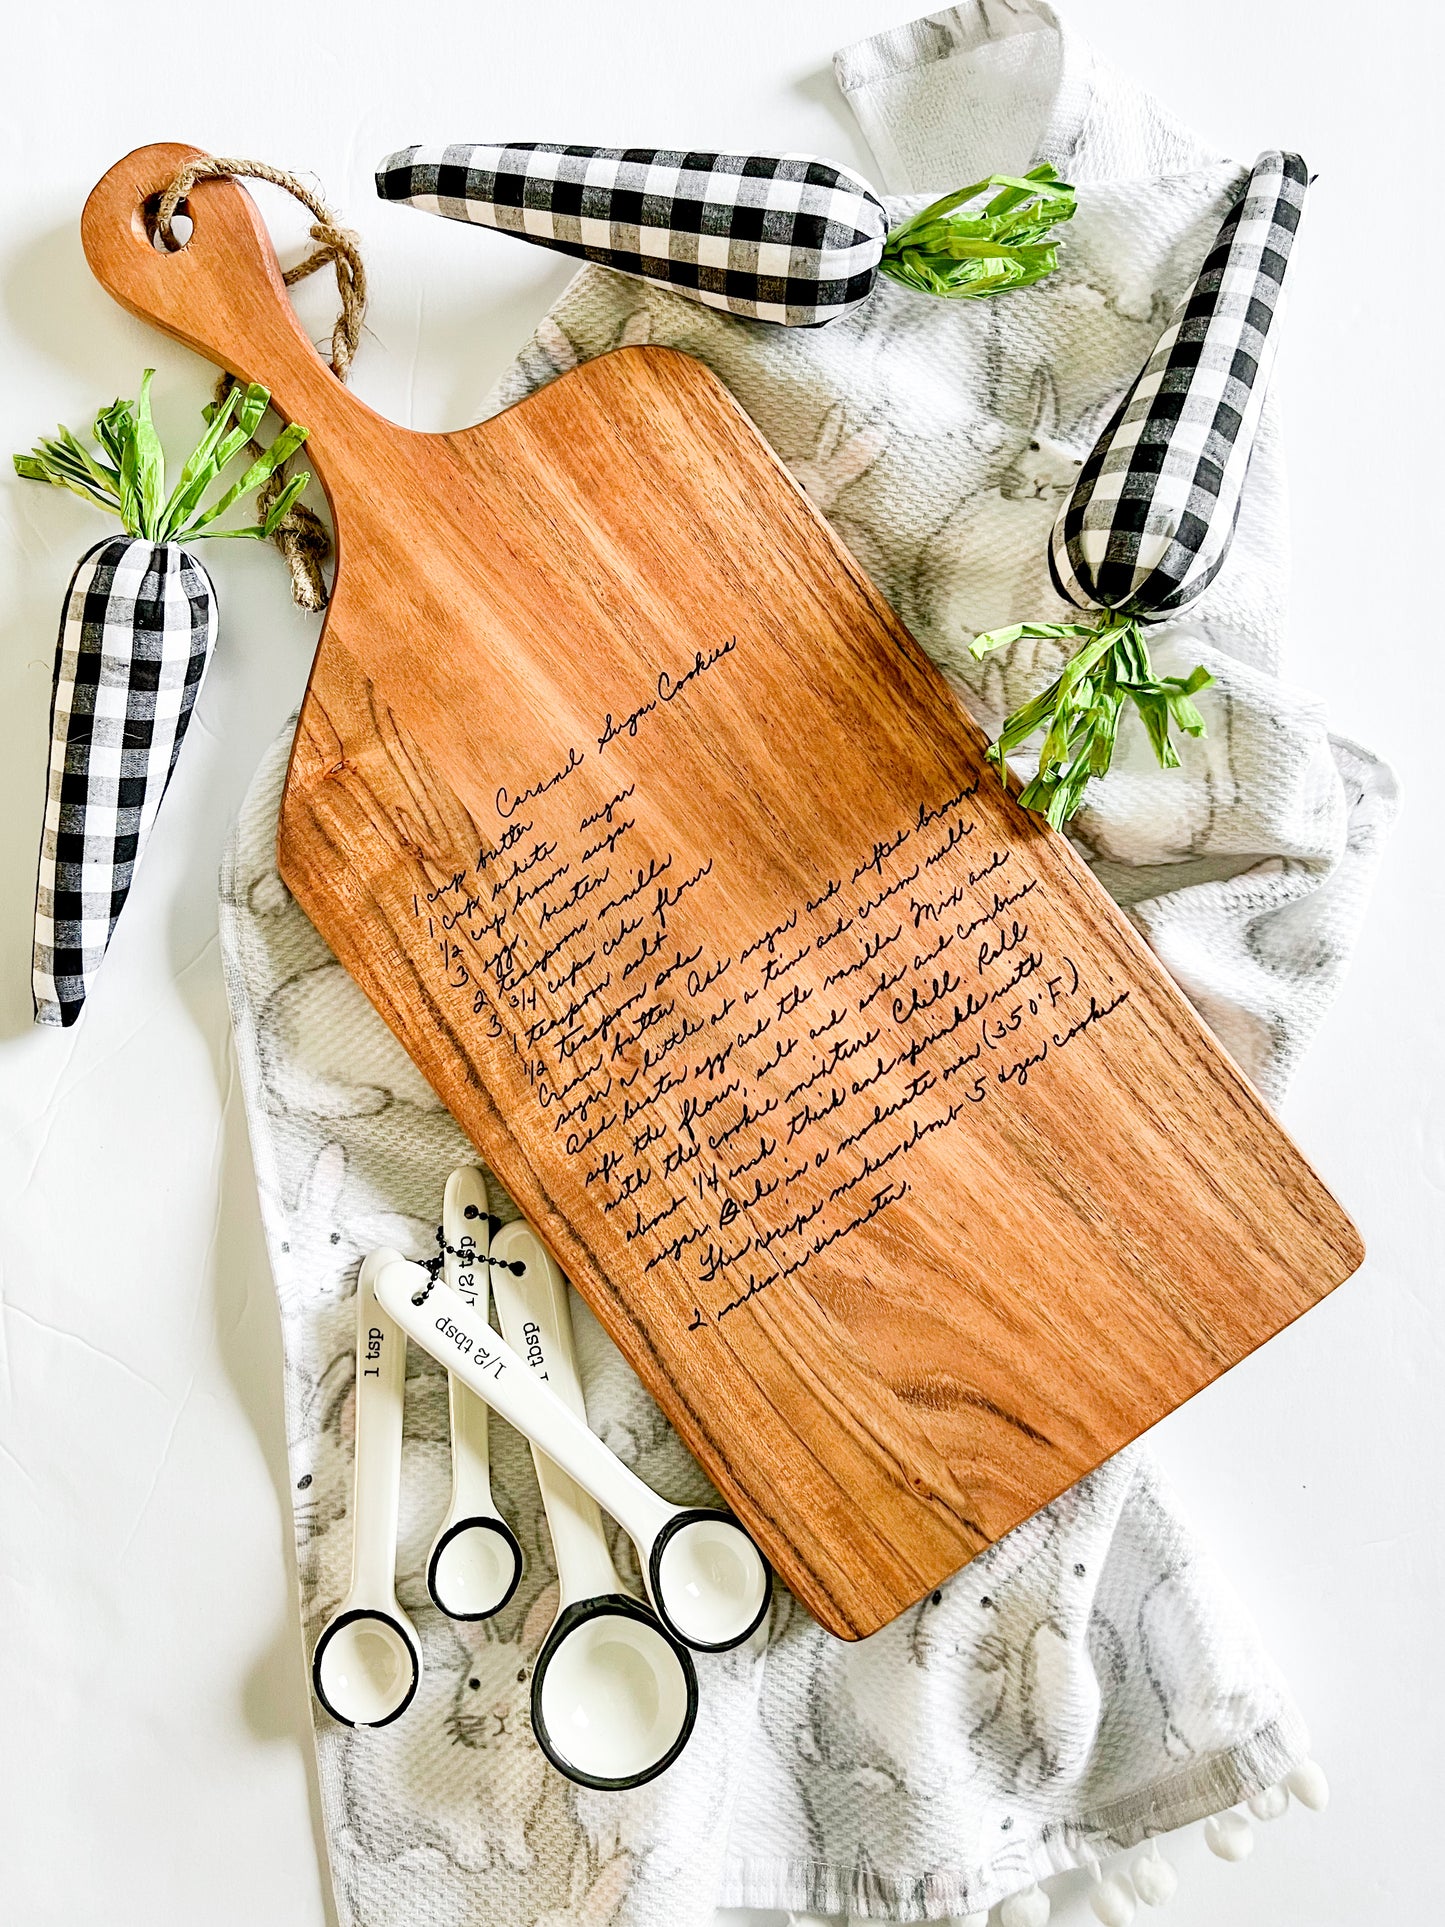 Caramel Sugar Cookies
1 cup butter
1 cup white sugar
1/2 cup brown sugar
3 eggs, beaten
2 teaspoons vanilla
3 3/4 cups cake flour
1 teaspoon salt
1/2 teaspoon soda
Cream butter. Add sugar and sifted brown
sugar a little at a time and cream well.
Add beaten eggs and the vanilla. Mix and
sift the flour, salt and soda and combine
with the cookie mixture. Chill. Roll
about 1/4 inch thick and sprinkle with
sugar. Bake in a moderate oven (350°F.)
This recipe makes about 5 dozen cookies
2 inches in diameter.
1 tsp
1/2 tsp
1/2 tbsp
tbsp